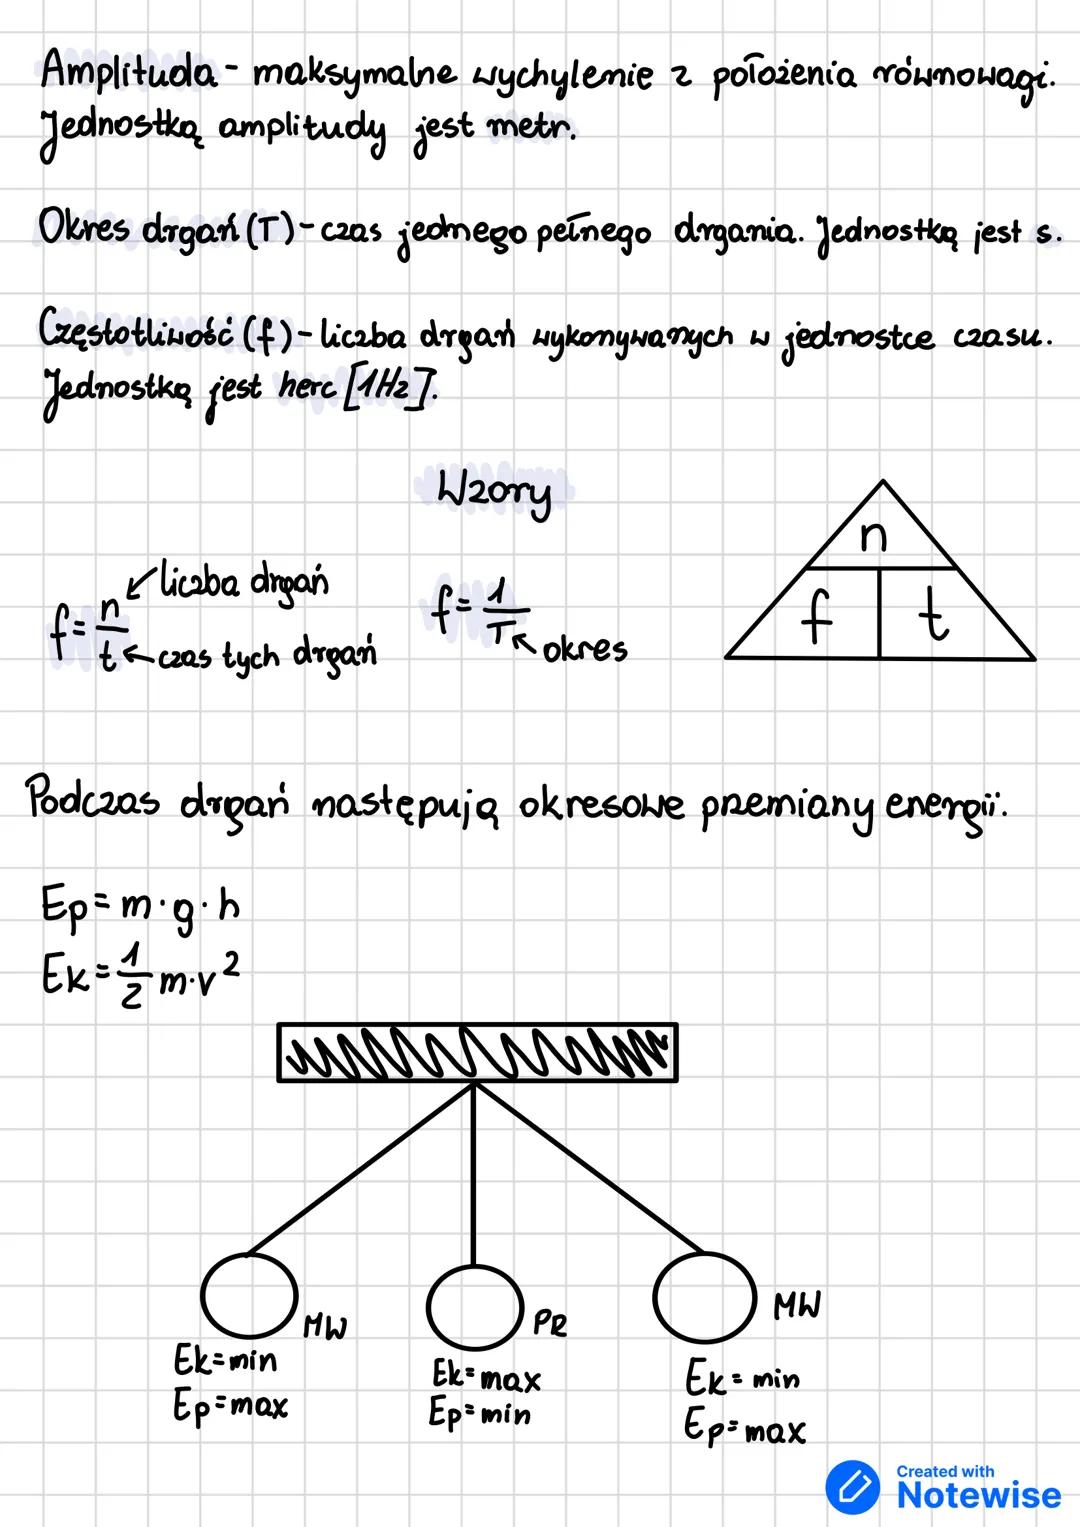 Amplituda - maksymalne wychylenie z położenia równowagi.
Jednostką amplitudy jest metr.
Okres drgań (T) - czas jednego pełnego drgania. Jednostką jest s.
Częstotliwość (f) - liczba drgań wykonywanych w jednostce czasu.
Jednostką jest herc [1Hz].
Wzory
f = n/t
liczba drgań
czas tych drgań
f = 1/T
okres
n
f t
Podczas drgań następują okresowe przemiany energii:
Ep = m · g · h
Ek = 1/2 m · v²
MW
Ek = min
Ep = max
PR
Ek = max
Ep = min
MW
Ek = min
Ep = max
Created with
Notewise